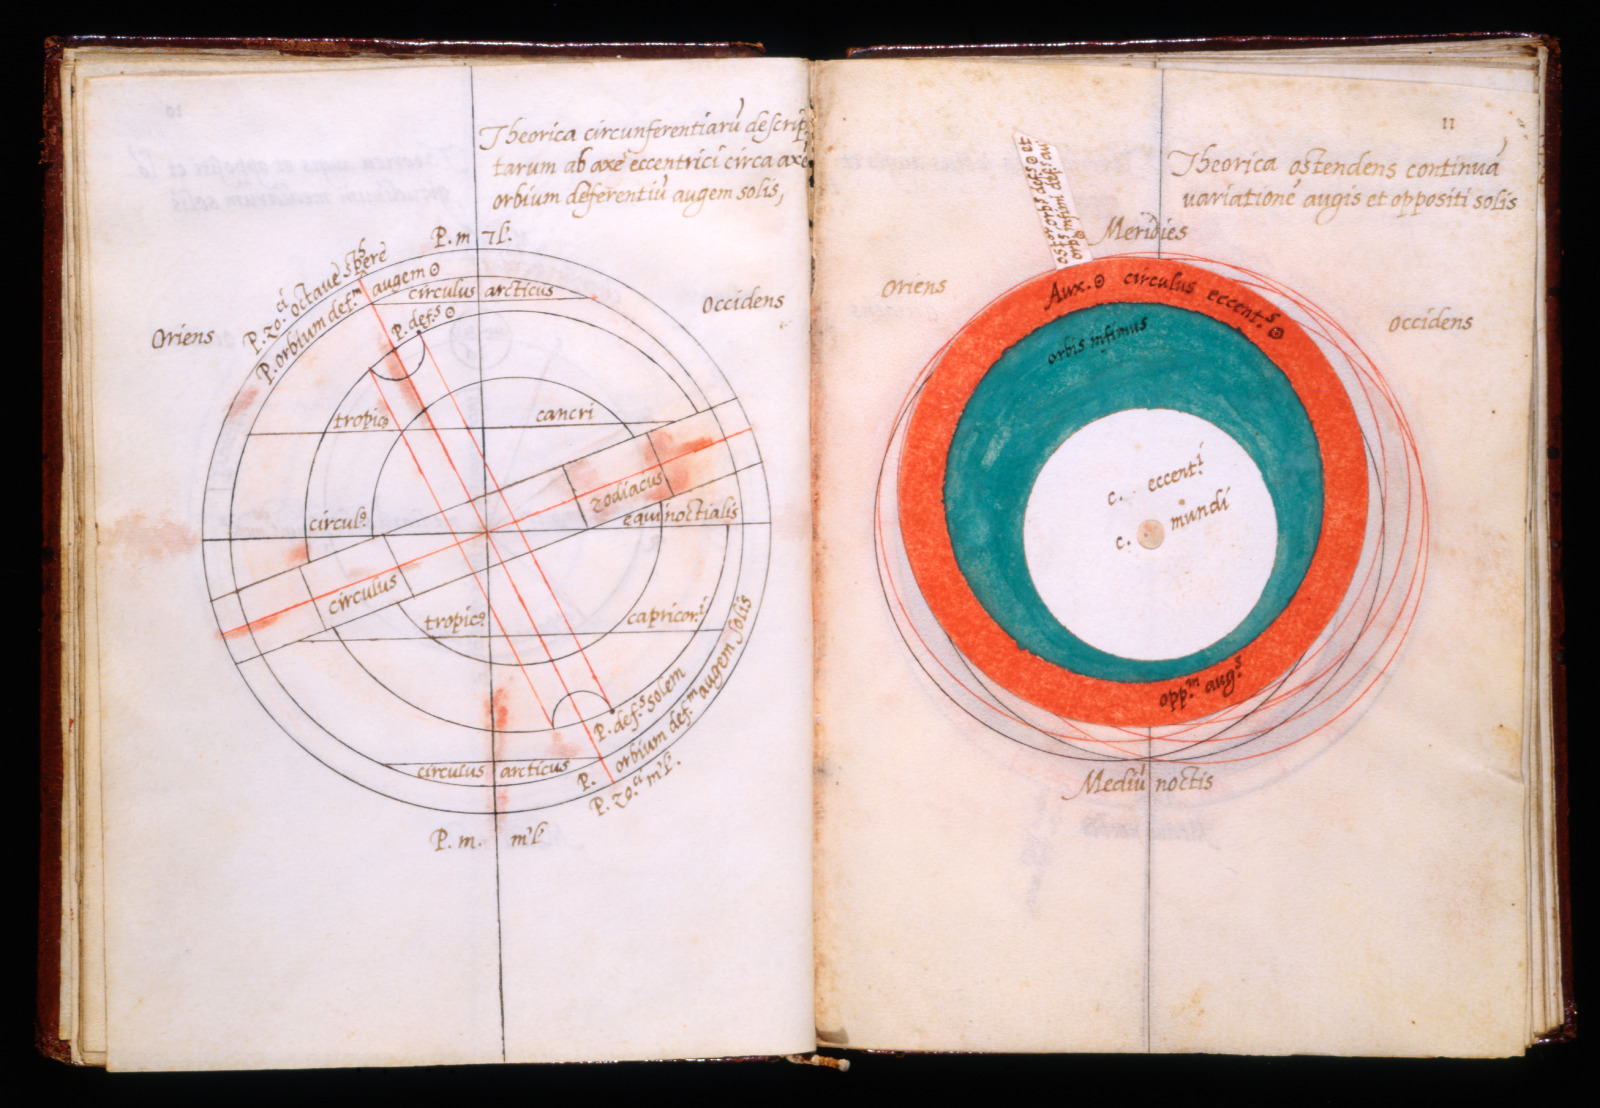 Theorica circunferentiarū descrip
tarum ab axe eccentrici circa axē
orbium deferentiū augem solis,
P. m ꝛl.
P. zo.ci octaue sphere
P. orbium def.m augem ☉
circulus arcticus
P. def.s ☉
Oriens
Occidens
tropic9 cancri
zodiacus
circul9 equinoctialis
circulus
tropic9 capricorni
P. def.s solem
P. orbium def.m augem solis
circulus arcticus
P. zo.ci m'l.
P. m. m'l.
11
Theorica ostendens continuā
uariationē augis et oppositi solis
Meridies
Oriens
Occidens
Aux. ☉ circulus eccent.s ☉
orbis infimus
c. eccent.i
c. mundi
opp.m aug.s
Mediū noctis